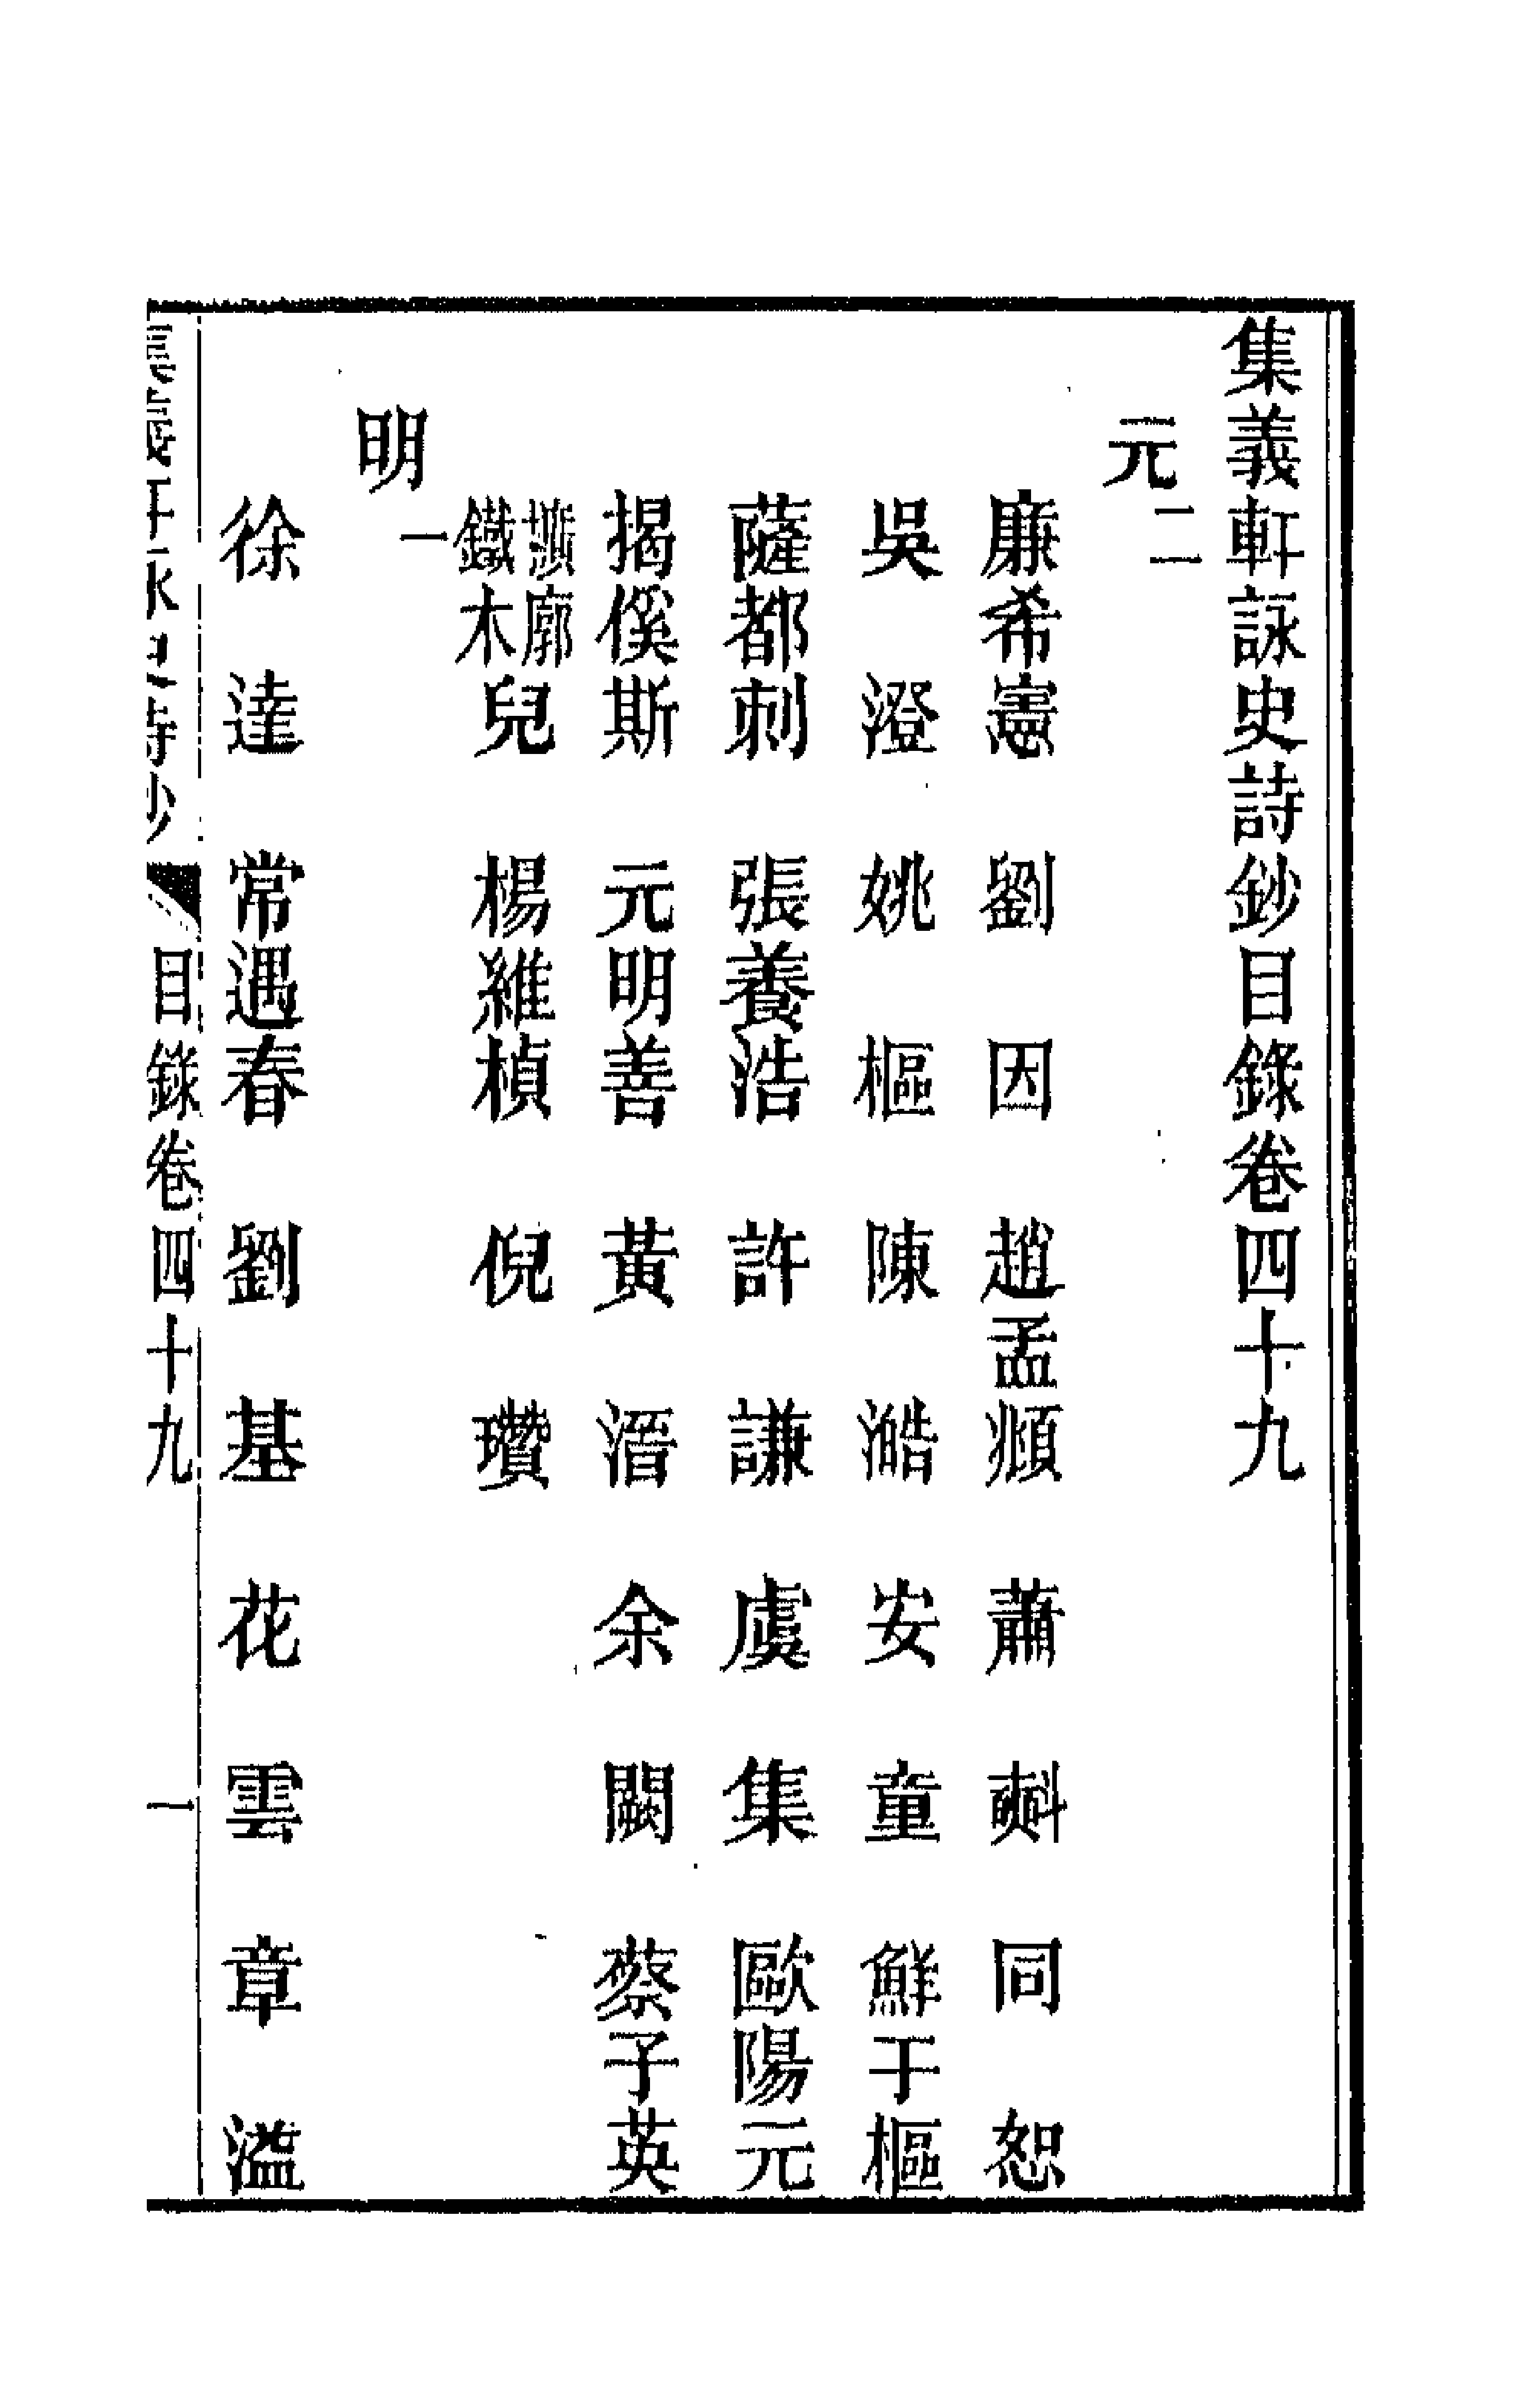 集義軒詠史詩鈔目錄卷四十九
元二
廉希憲 劉因 趙孟頫 蕭㪺 同恕
吳澄 姚樞 陳澔 安童 鮮于樞
薩都刺 張養浩 許謙 虞集 歐陽元
揭傒斯 元明善 黃溍 余闕 蔡子英
擴廓鐵木兒 楊維楨 倪瓚
明一
徐達 常遇春 劉基 花雲 章溢
集義軒詠史詩鈔 目錄卷四十九 一